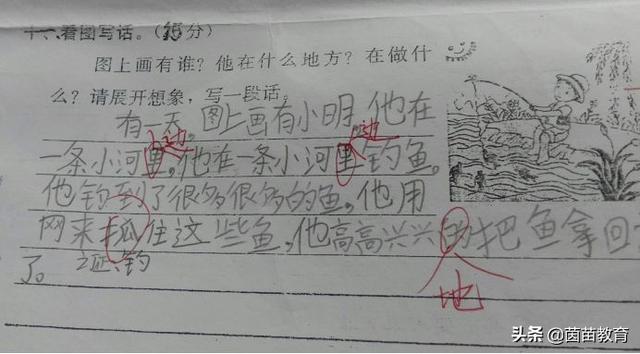 十一、看图写话。(15分)
图上画有谁？他在什么地方？在做什
么？请展开想象，写一段话。
有一天。图上画有小明。他在
边 边
一条小河里。他在一条小河里钓鱼。
他钓到了很多很多的鱼。他用
网来抓住这些鱼。他高高兴兴的把鱼拿回
了。 钓
地
头条 @茵苗教育